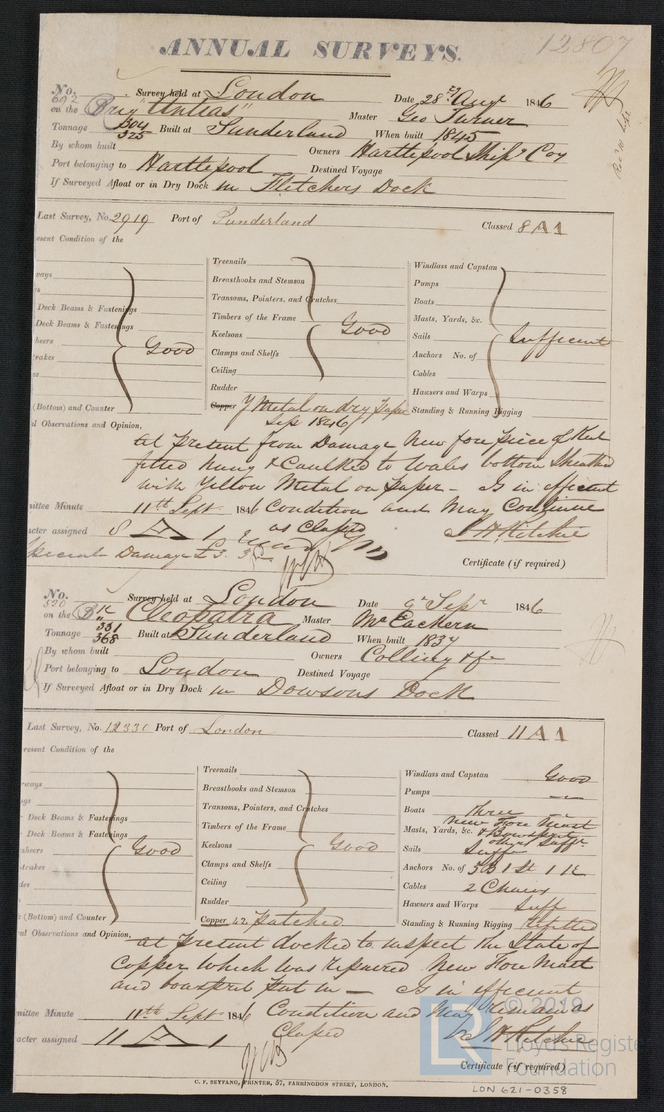 ANNUAL SURVEYS. 12807
No. 692 Survey held at London Date 28th Augt 1846
on the Brig Master Geo Turner
Tonnage 304 325 Built at Sunderland When built 1845
By whom built Owners Hartlepool Ship Coy
Port belonging to Hartlepool Destined Voyage
If Surveyed Afloat or in Dry Dock in Fletchers Dock
Last Survey, No. 2919 Port of Sunderland Classed 8 A 1
esent Condition of the
ways
Deck Beams & Fastenings
Deck Beams & Fastenings
heers
rakes
(Bottom) and Counter
Good
Treenails
Breasthooks and Stemson
Transoms, Pointers, and Crutches
Timbers of the Frame
Keelsons
Clamps and Shelfs
Ceiling
Rudder
Good
Copper Y Metal on dry Paper
Sep 1846
Windlass and Capstan
Pumps
Boats
Masts, Yards, &c.
Sails
Anchors No. of
Cables
Hawsers and Warps
Standing & Running Rigging
Sufficient
l Observations and Opinion,
at Present from Damage New fore piece of Keel
fitted hung & Caulked to Wales bottom Sheathd
with Yellow Metal on Paper - Is in efficient
mittee Minute 11th Sept 1846 Condition and May Continue
acter assigned 8 A 1 as Classed
Special Damage £3. 3
Certificate (if required)
No. 520 Survey held at London Date Sepr 1846
on the Bk Cleopatra Master McEachern
Tonnage 331 368 Built at Sunderland When built 1837
By whom built Owners
Port belonging to London Destined Voyage
If Surveyed Afloat or in Dry Dock in Dowsons Dock
Last Survey, No. 12330 Port of London Classed 11 A 1
resent Condition of the
ways
Deck Beams & Fastenings
Deck Beams & Fastenings
sheers
trakes
(Bottom) and Counter
Good
Treenails
Breasthooks and Stemson
Transoms, Pointers, and Crutches
Timbers of the Frame
Keelsons
Clamps and Shelfs
Ceiling
Rudder
Good
Copper 42 Patched
Windlass and Capstan Good
Pumps
Boats Three
Masts, Yards, &c. New Fore Mast & Bowsprit
Sails Suff
Anchors No. of 3 B 1 St 1 K
Cables 2 Chains
Hawsers and Warps Suff
Standing & Running Rigging Refitted
al Observations and Opinion,
at Present docked to inspect the State of
Copper which was repaired New Fore Mast
and bowsprit put in - Is in efficient
mittee Minute 11th Sept 1846 Condition and May remain as
acter assigned 11 A 1 Classed
Certificate (if required)
C. F. SEYFANG, PRINTER, 57, FARRINGDON STREET, LONDON.
LR © 2019
Lloyd's Registe
Foundation
LON 621-0358